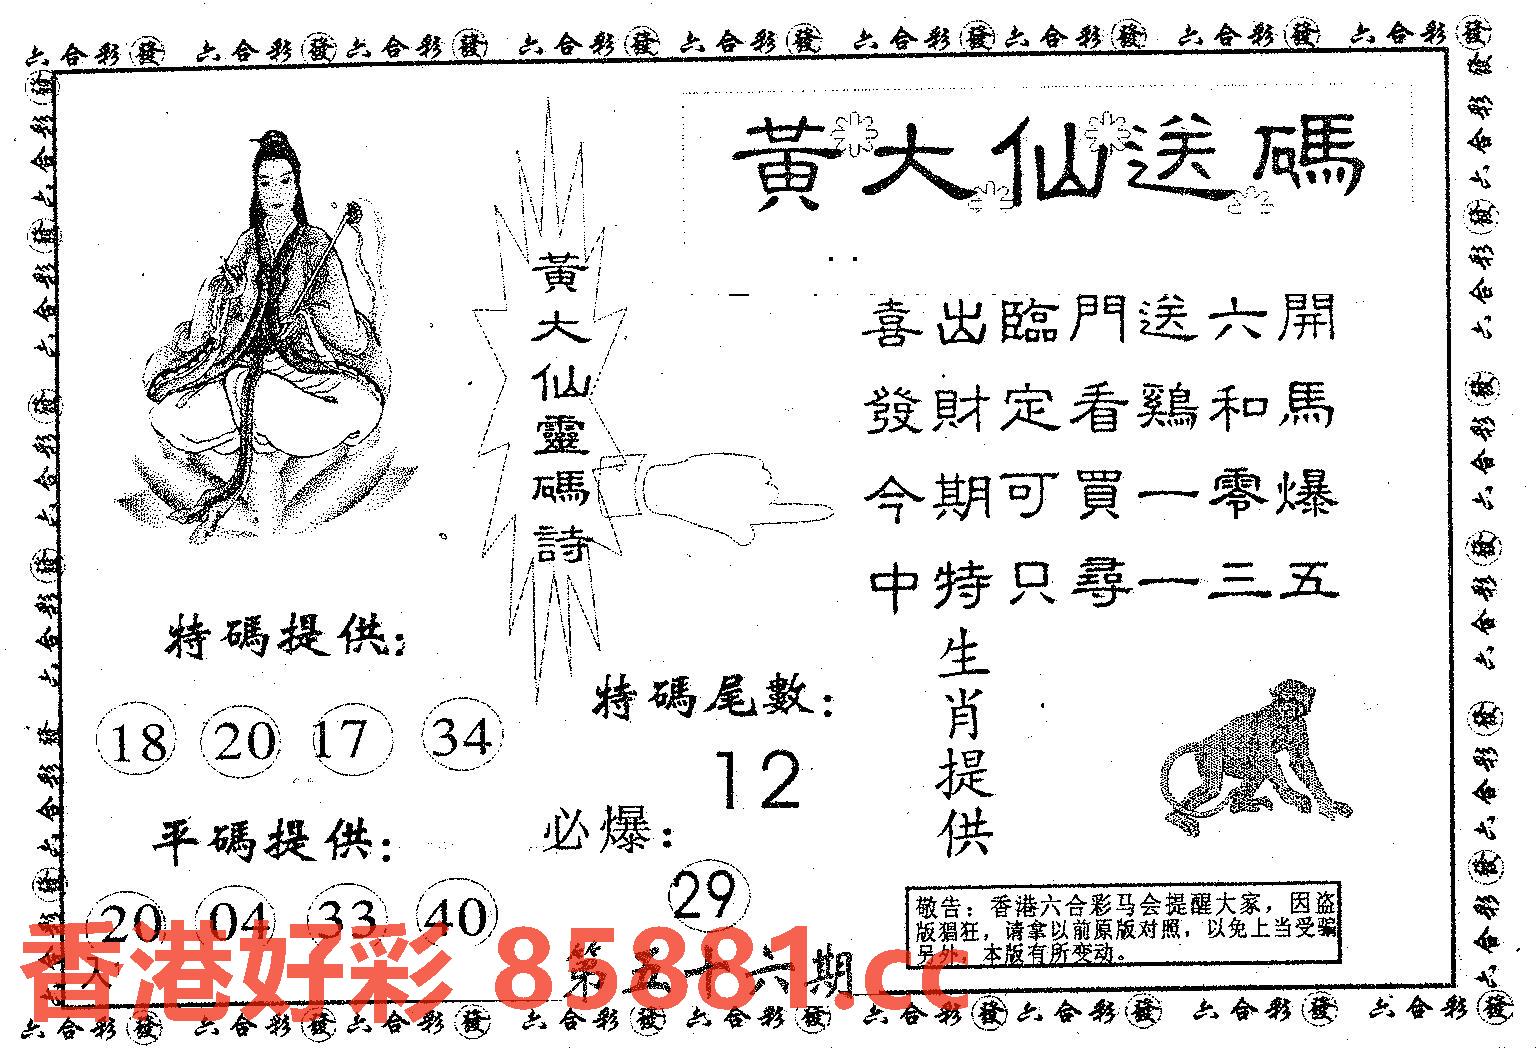 六合彩發 六合彩發六合彩發 六合彩發 六合彩發 六合彩發六合彩發 六合彩發 六合彩發
黃大仙送碼
黃大仙靈碼詩
喜出臨門送六開
發財定看鷄和馬
今期可買一零爆
中特只尋一三五
特碼提供：
18 20 17 34
平碼提供：
20 04 33 40
特碼尾數：
12
必爆：
29
生肖提供
敬告：香港六合彩马会提醒大家，因盗
版猖狂，请拿以前原版对照，以免上当受骗
另外，本版有所变动。
第五十六期
香港好彩 85881.cc
六合彩發 六合彩發六合彩發 六合彩發 六合彩發 六合彩發六合彩發 六合彩發 六合彩發